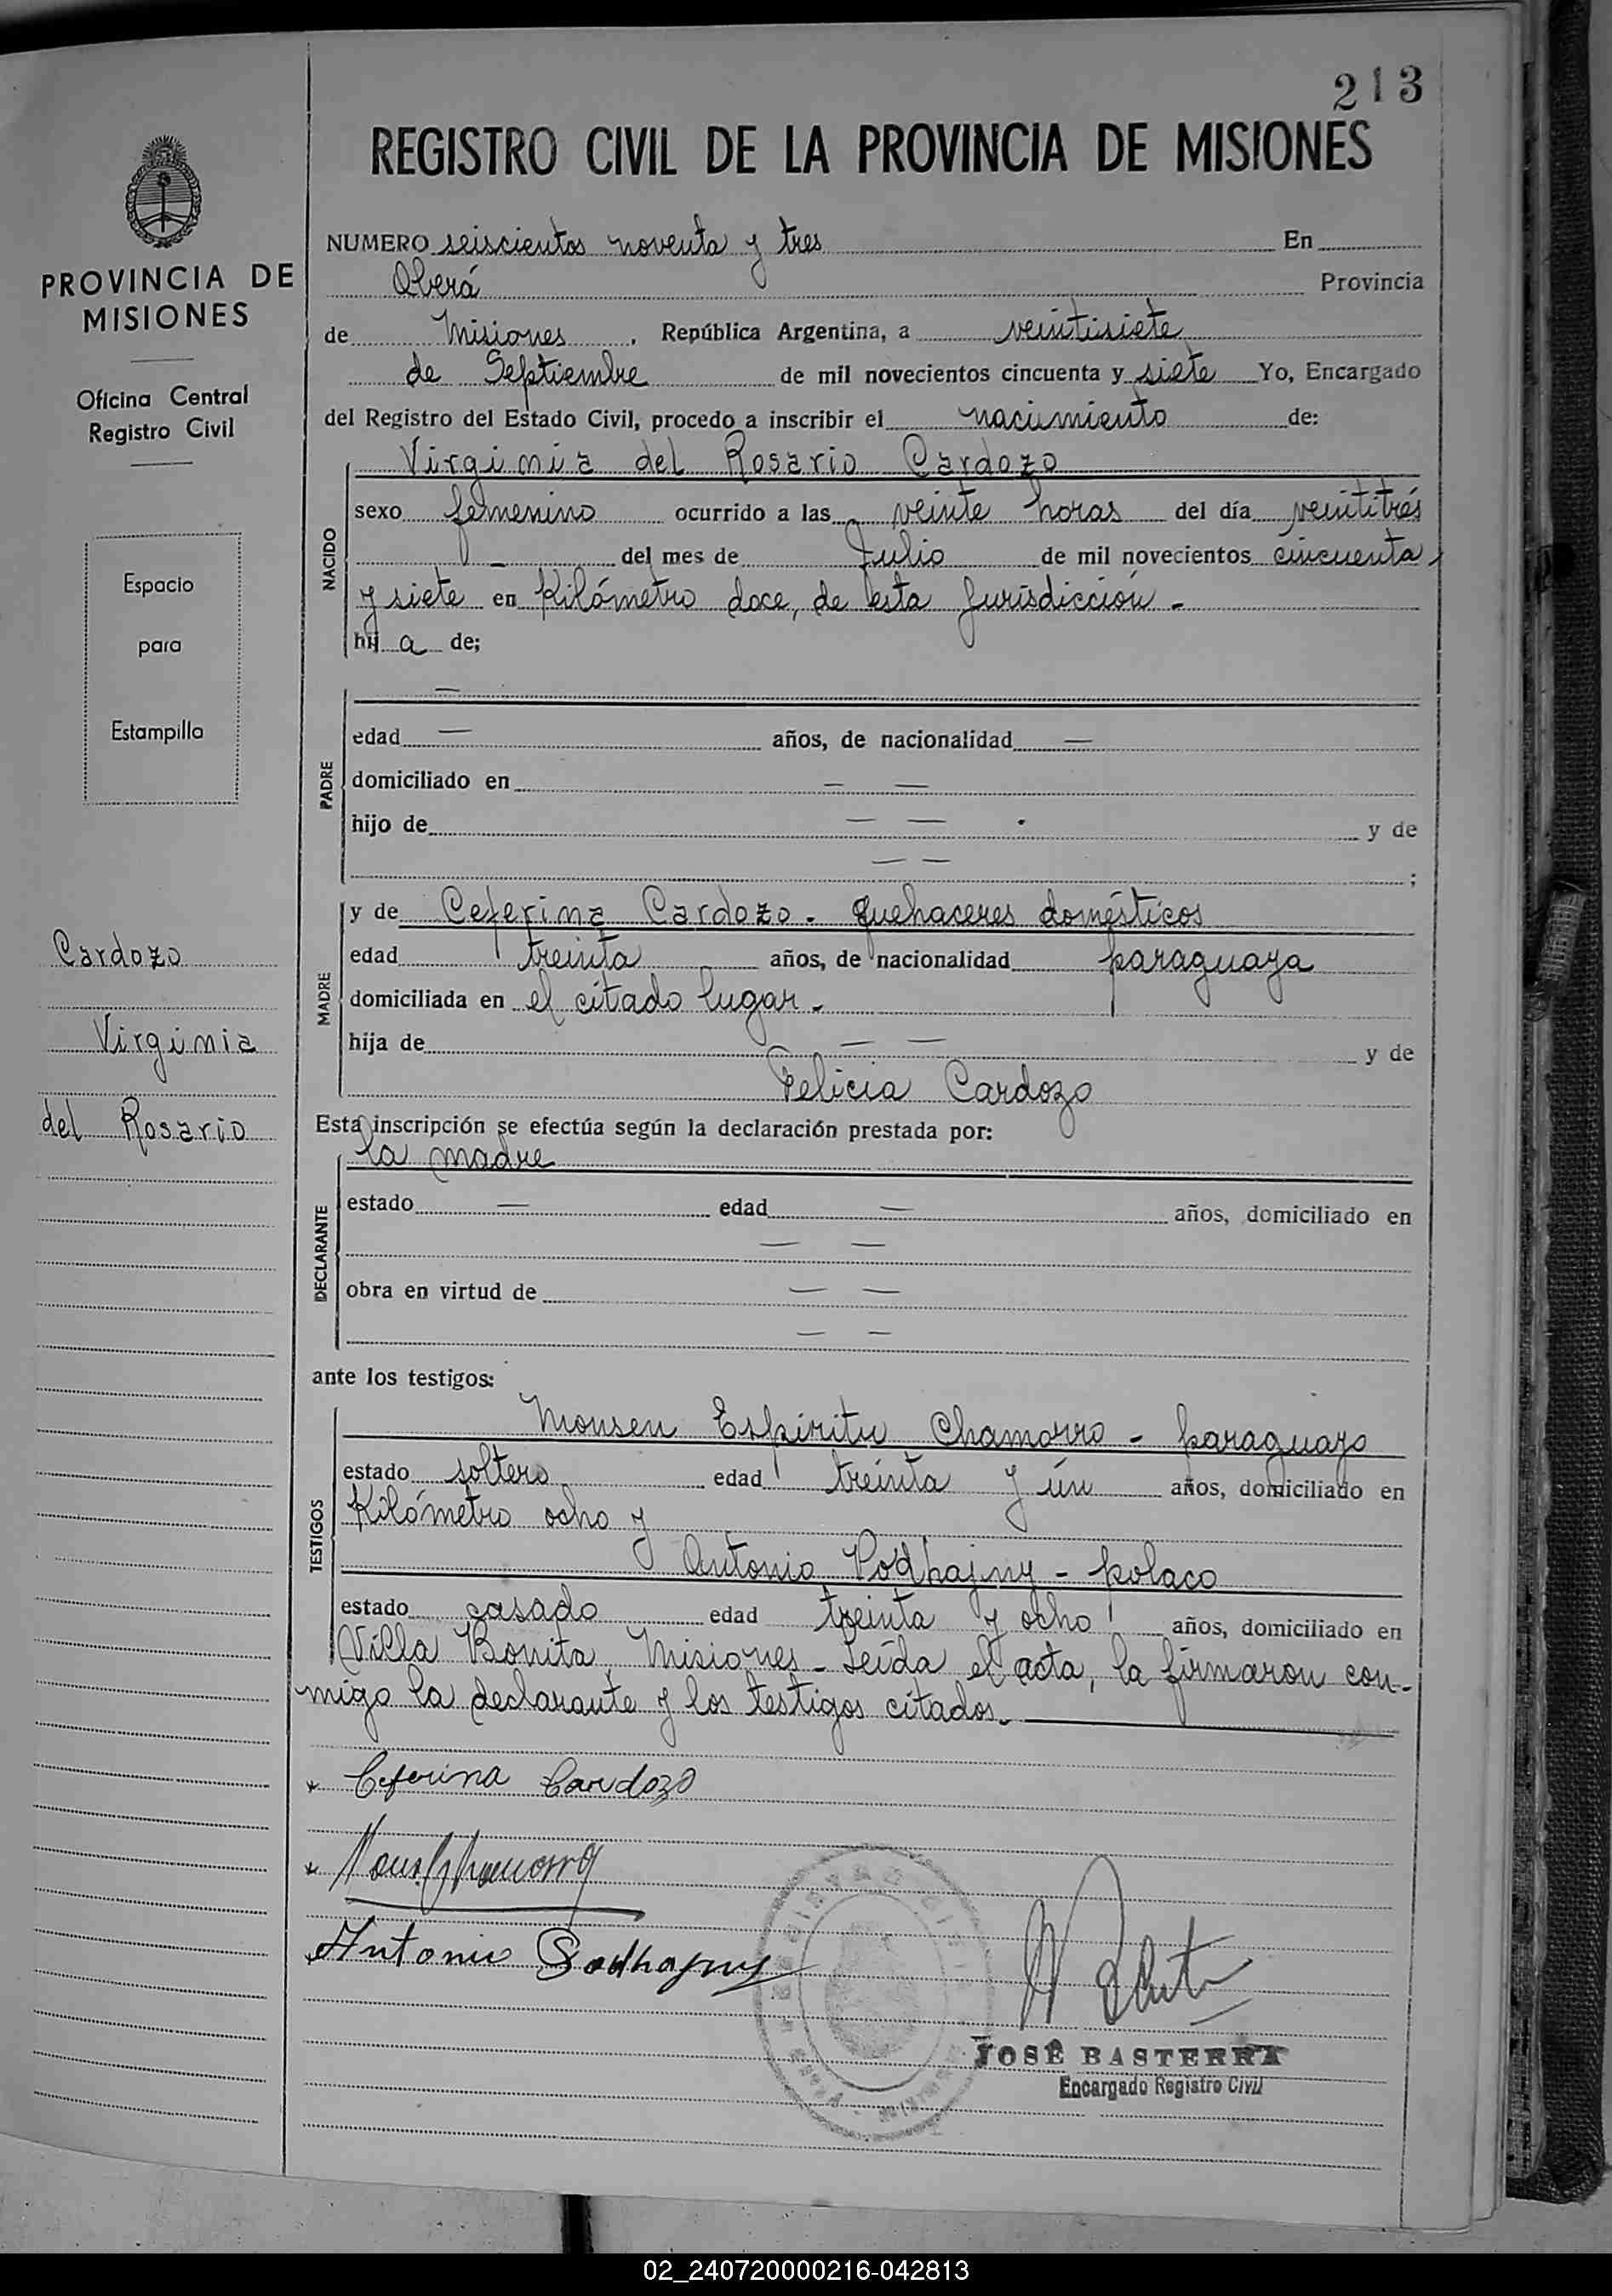 213
REGISTRO CIVIL DE LA PROVINCIA DE MISIONES
PROVINCIA DE
MISIONES
Oficina Central
Registro Civil
Espacio
para
Estampilla
Cardozo
Virginia
del Rosario
NUMERO seiscientos noventa y tres En
Oberá Provincia
de Misiones, República Argentina, a veintisiete
de Septiembre de mil novecientos cincuenta y siete Yo, Encargado
del Registro del Estado Civil, procedo a inscribir el nacimiento de:
NACIDO
Virginia del Rosario Cardozo
sexo femenino ocurrido a las veinte horas del día veintitrés
- del mes de Julio de mil novecientos cincuenta
y siete en Kilómetro doce, de esta Jurisdicción -
hij a de;
PADRE
—
edad — años, de nacionalidad —
domiciliado en — —
hijo de — — y de
— — ;
MADRE
y de Ceferina Cardozo - quehaceres domésticos
edad treinta años, de nacionalidad paraguaya
domiciliada en el citado lugar -
hija de — — y de
Felicia Cardozo
Esta inscripción se efectúa según la declaración prestada por:
DECLARANTE
la madre
estado — edad — años, domiciliado en
— —
obra en virtud de — —
— —
ante los testigos:
TESTIGOS
Monsen Espiritu Chamorro - paraguayo
estado soltero edad treinta y ún años, domiciliado en
Kilómetro ocho y
Antonio Podhajny - polaco
estado casado edad treinta y ocho años, domiciliado en
Villa Bonita, Misiones - Leída el acta, la firmaron con-
migo la declarante y los testigos citados.
Ceferina Cardozo
Antonio Podhajny
JOSÉ BASTERRA
Encargado Registro Civil
02_240720000216-042813